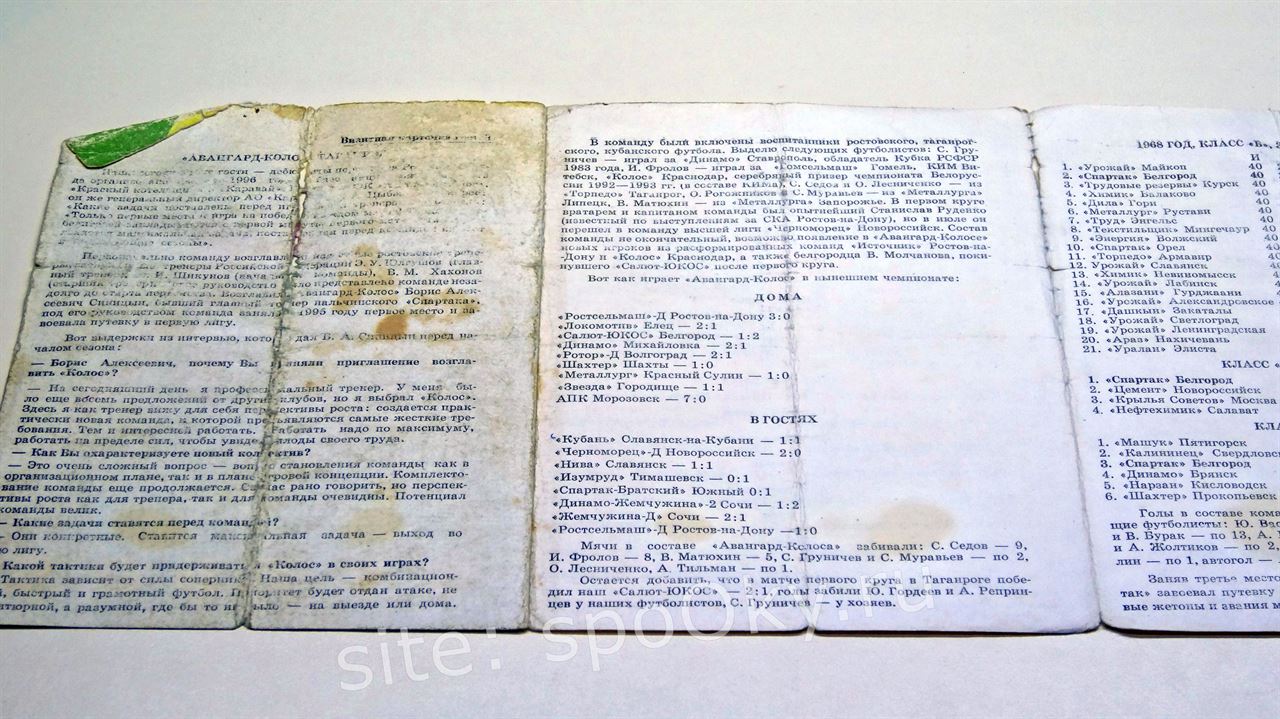 Визитная карточка
«АВАНГАРД-КОЛОС»
гости —
1996
«Красный котельщик» «Каравай»
он же генеральный директор АО
«Какие задачи поставлены перед
«Только первые места и игра на победу
сезоны».
команду возглавля
тренеры Российской Э. У.
ный тренер), Шикунов В. М. Хахонов
руководство было представлено команде неза-
долго до старта Возглавил «Авангард-Колос» Борис Алек-
сеевич Синицын, бывший главный тренер нальчикского «Спартака»,
под его руководством команда заняла в 1995 году первое место и за-
воевала путевку в первую лигу.
Вот выдержки из интервью, дал Б. А. Синицын перед на-
чалом сезона:
— Борис Алексеевич, почему Вы приняли приглашение возгла-
вить «Колос»?
— На сегодняшний день я профессиональный тренер. У меня бы-
ло еще восемь предложений от других клубов, но я выбрал «Колос».
Здесь я как тренер вижу для себя перспективы роста: создается прак-
тически новая команда, к которой предъявляются самые жесткие тре-
бования. Тем и интересней работать. Работать надо по максимуму,
работать на пределе сил, чтобы увидеть плоды своего труда.
— Как Вы охарактеризуете новый коллектив?
— Это очень сложный вопрос — вопрос становления команды как в
организационном плане, так и в плане игровой концепции. Комплекто-
вание команды еще продолжается. Сейчас рано говорить, но перспек-
тивы роста как для тренера, так и для команды очевидны. Потенциал
команды велик.
— Какие задачи ставятся перед командой?
— Они конкретные. Ставится максимальная задача — выход во
ю лигу.
Какой тактики будет придерживаться «Колос» в своих играх?
Тактика зависит от силы соперника. Наша цель — комбинацион-
й, быстрый и грамотный футбол. Приоритет будет отдан атаке, не
нтюрной, а разумной, где бы то ни было — на выезде или дома.
В команду были включены воспитанники ростовского, таганрог-
ского, кубанского футбола. Выделю следующих футболистов: С. Гру-
ничев — играл за «Динамо» Ставрополь, обладатель Кубка РСФСР
1983 года, И. Фролов — играл за «Гомсельмаш» Гомель, КИМ Ви-
тебск, «Колос» Краснодар, серебряный призер чемпионата Белорус-
сии 1992—1993 гг. (в составе КИМа), С. Седов и О. Лесниченко — из
«Торпедо» Таганрог, О. Рогожников и С. Муравьев — из «Металлурга»
Липецк, В. Матюхин — из «Металлурга» Запорожье. В первом круге
вратарем и капитаном команды был опытнейший Станислав Руденко
(известный по выступлениям за СКА Ростов-на-Дону), но в июле он
перешел в команду высшей лиги «Черноморец» Новороссийск. Состав
команды не окончательный, возможно появление в «Авангард-Колосе»
новых игроков из расформированных команд «Источник» Ростов-на-
Дону и «Колос» Краснодар, а также белгородца В. Молчанова, поки-
нувшего «Салют-ЮКОС» после первого круга.
Вот как играет «Авангард-Колос» в нынешнем чемпионате:
ДОМА
«Ростсельмаш»-Д Ростов-на-Дону 3:0
«Локомотив» Елец — 2:1
«Салют-ЮКОС» Белгород — 1:2
«Динамо» Михайловка — 2:1
«Ротор»-Д Волгоград — 2:1
«Шахтер» Шахты — 1:0
«Металлург» Красный Сулин — 1:0
«Звезда» Городище — 1:1
АПК Морозовск — 7:0
В ГОСТЯХ
«Кубань» Славянск-на-Кубани — 1:1
«Черноморец»-Д Новороссийск — 2:0
«Нива» Славянск — 1:1
«Изумруд» Тимашевск — 0:1
«Спартак-Братский» Южный 0:1
«Динамо-Жемчужина»-2 Сочи — 1:2
«Жемчужина-Д» Сочи — 2:1
«Ростсельмаш»-Д Ростов-на-Дону —1:0
Мячи в составе «Авангард-Колоса» забивали: С. Седов — 9,
И. Фролов — 8, В. Матюхин — 5, С. Груничев и С. Муравьев — по 2,
О. Лесниченко, А. Тильман — по 1.
Остается добавить, что в матче первого круга в Таганроге побе-
дил наш «Салют-ЮКОС» — 2:1, голы забили Ю. Гордеев и А. Реприн-
цев у наших футболистов, С. Груничев — у хозяев.
1968 ГОД, КЛАСС «Б»,
И
1. «Урожай» Майкоп 40
2. «Спартак» Белгород 40
3. «Трудовые резервы» Курск 40
4. «Химик» Балаково 40
5. «Дила» Гори 40
6. «Металлург» Рустави 40
7. «Труд» Энгельс 40
8. «Текстильщик» Мингечаур 40
9. «Энергия» Волжский 40
10. «Спартак» Орел 40
11. «Торпедо» Армавир 40
12. «Урожай» Славянск 40
13. «Химик» Невинномысск 40
14. «Урожай» Лабинск 40
15. «Алазани» Гурджаани 40
16. «Урожай» Александровское 40
17. «Дашкын» Закаталы 40
18. «Урожай» Светлоград 40
19. «Урожай» Ленинградская 40
20. «Араз» Нахичевань 40
21. «Уралан» Элиста 40
КЛАСС «
1. «Спартак» Белгород
2. «Цемент» Новороссийск
3. «Крылья Советов» Москва
4. «Нефтехимик» Салават
КЛ
1. «Машук» Пятигорск
2. «Калининец» Свердловск
3. «Спартак» Белгород
4. «Динамо» Брянск
5. «Нарзан» Кисловодск
6. «Шахтер» Прокопьевск
Голы в составе кома
щие футболисты: Ю. Вас
и В. Бурак — по 13, А.
и А. Жолтиков — по 2,
лин — по 1, автогол — 1
Заняв третье место
так» завоевал путевку
вые жетоны и звания м
site: spoOky.ru